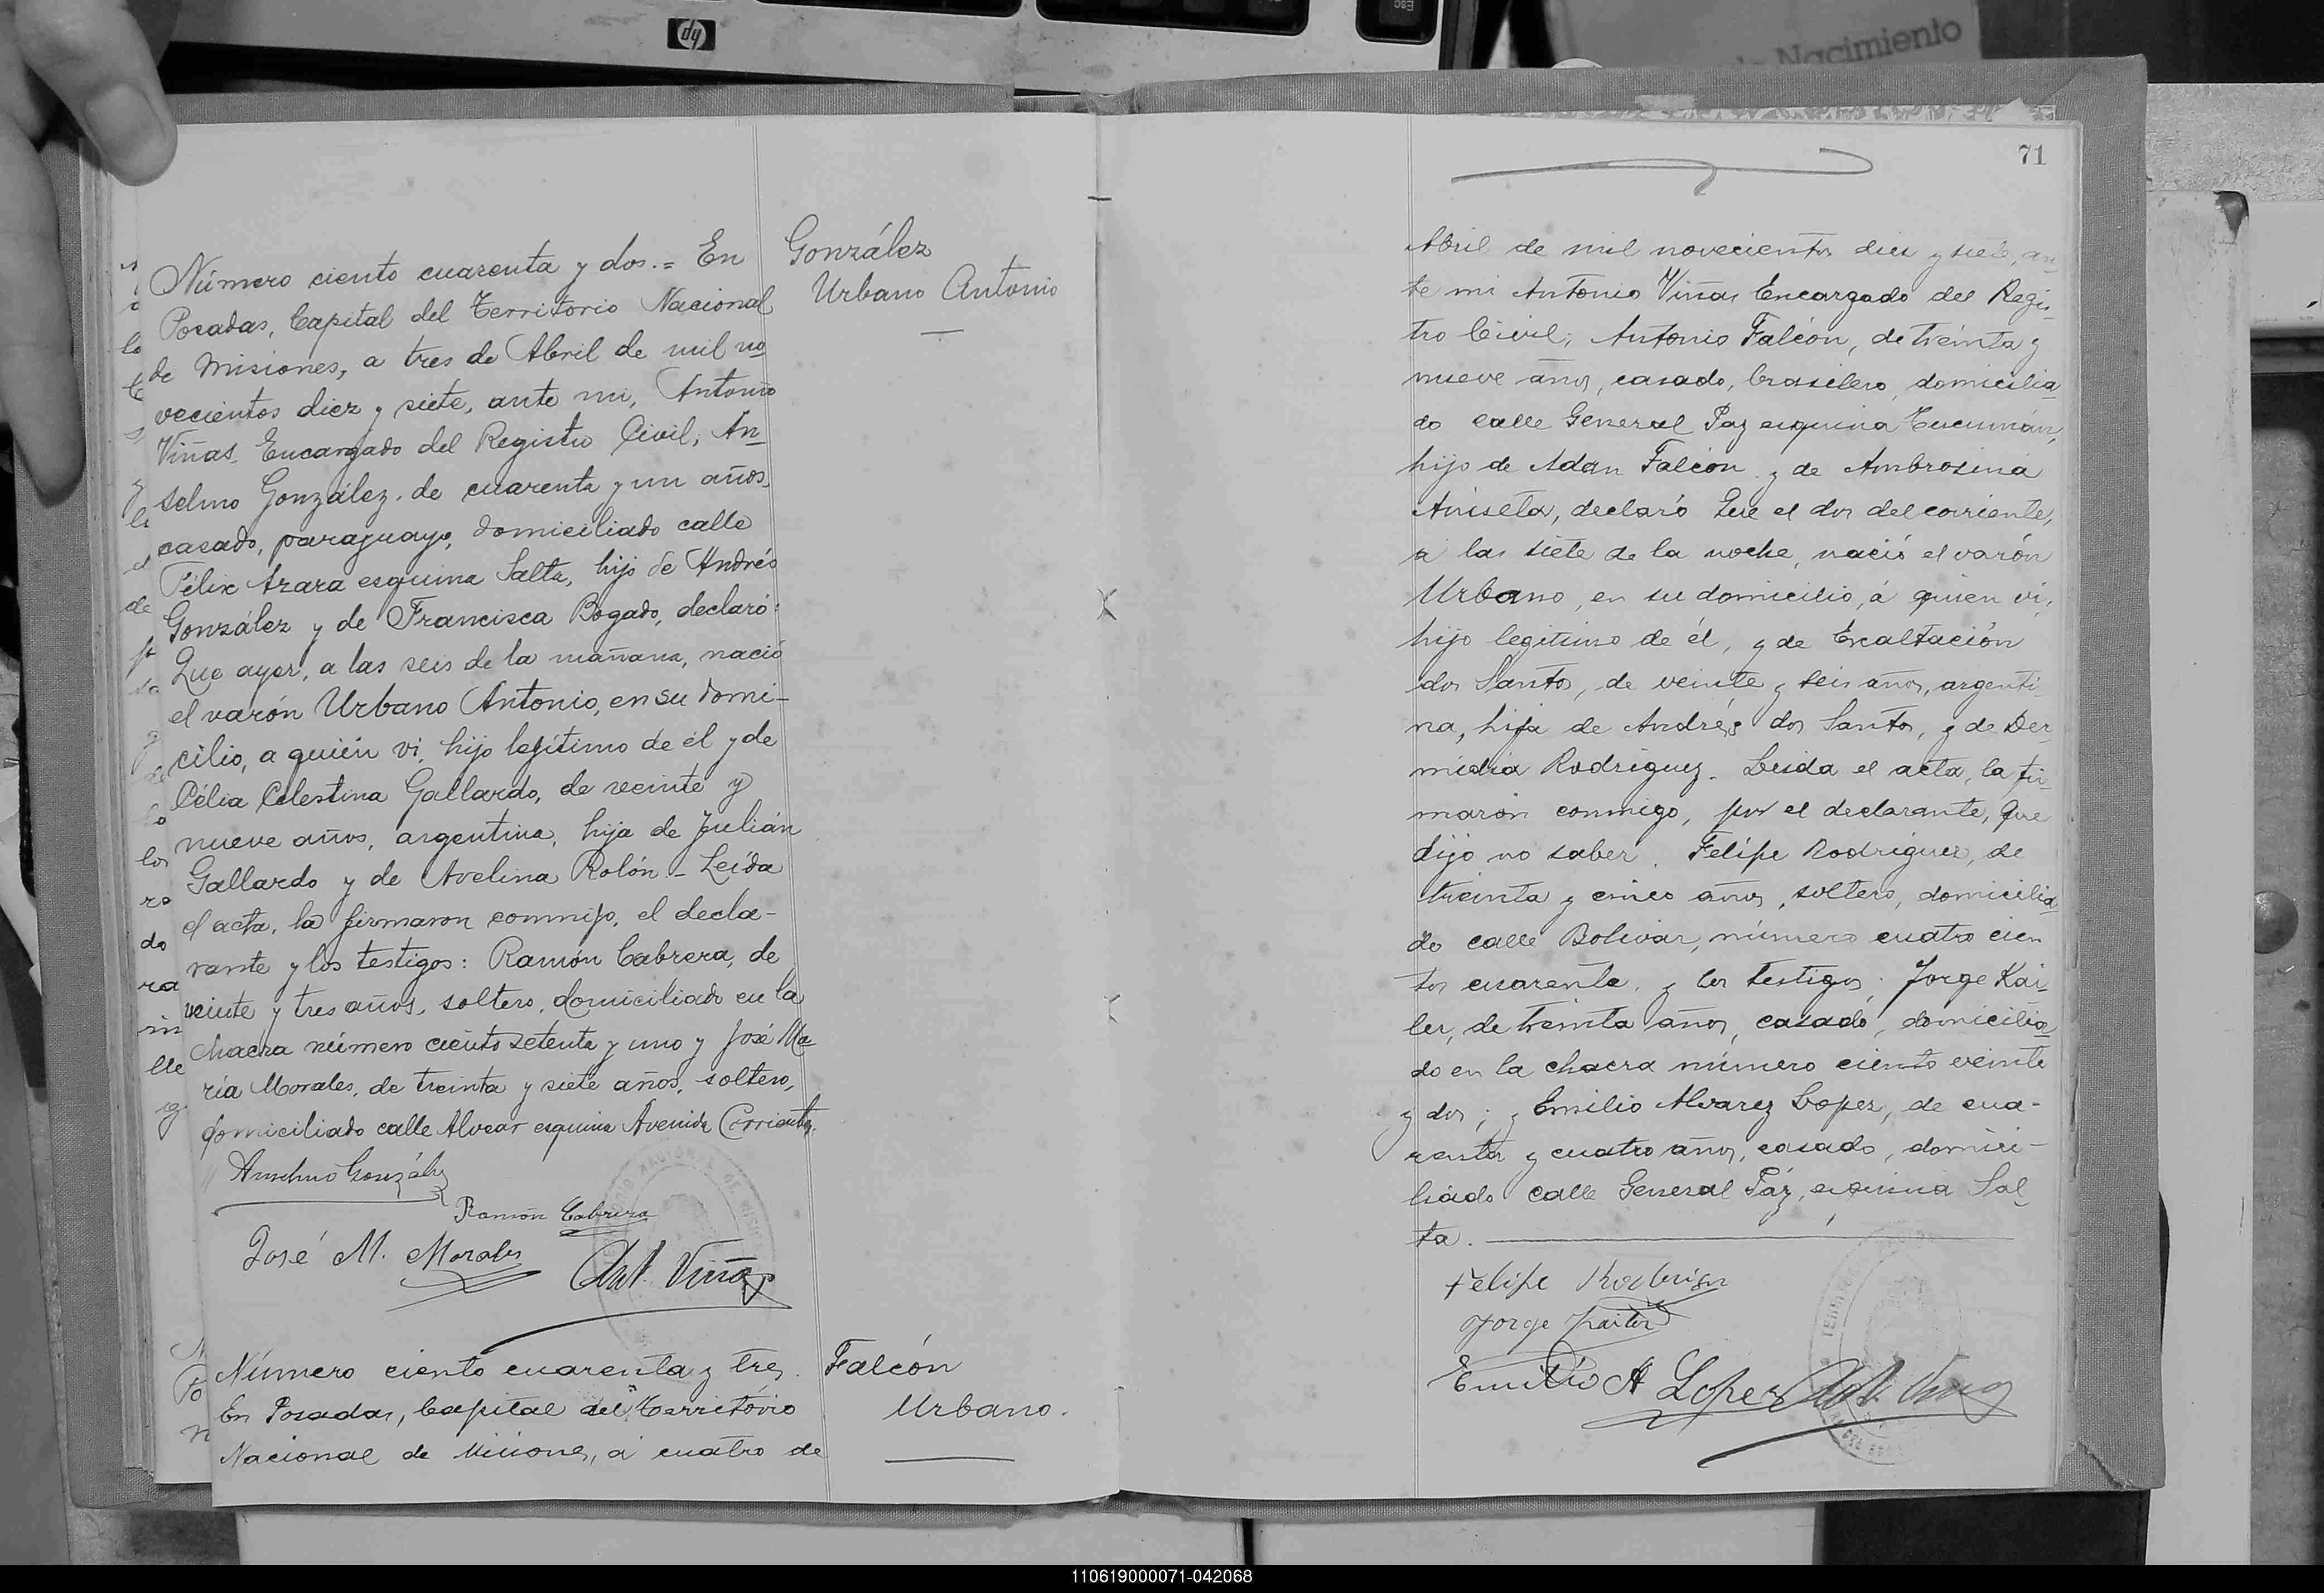 hp
ESC
de Nacimiento
Número ciento cuarenta y dos.= En
Posadas, Capital del Territorio Nacional
de Misiones, a tres de Abril de mil no
vecientos diez y siete, ante mi, Antonio
Viñas Encargado del Registro Civil; An
selmo González, de cuarenta y un años,
casado, paraguayo, domiciliado calle
Félix Azara esquina Salta, hijo de Andrés
González y de Francisca Bogado, declaró:
Que ayer, a las seis de la mañana, nació
el varón Urbano Antonio, en su domi-
cilio, a quién vi, hijo legítimo de él y de
Célia Celestina Gallardo, de veinte y
nueve años, argentina, hija de Julián
Gallardo y de Avelina Rolón - Leída
el acta, la firmaron conmigo, el decla-
rante y los testigos: Ramón Cabrera, de
veinte y tres años, soltero, domiciliado en la
chacra número ciento setenta y uno y José Ma
ría Morales, de treinta y siete años, soltero,
domiciliado calle Alvear esquina Avenida Corrientes.
Anselmo González
Ramón Cabrera
José M. Morales
Ant. Viñas
González
Urbano Antonio
Número ciento cuarenta y tres.
En Posadas, Capital del Territorio
Nacional de Misiones, á cuatro de
Falcón
Urbano.
71
Abril de mil novecientos diez y siete, an
te mi Antonio Viñas Encargado del Regis
tro Civil; Antonio Falcón, de treinta y
nueve años, casado, brasilero, domicilia
do calle General Paz esquina Tucumán,
hijo de Adan Falcón y de Ambrosina
Aniseta, declaró Que el dos del corriente,
á las siete de la noche, nació el varón
Urbano, en su domicilio, á quien vi,
hijo legítimo de él, y de Exaltación
dos Santos, de veinte y seis años, argenti
na, hija de Andrés dos Santos, y de Der
midia Rodriguez. Leida el acta, la fir
maron conmigo, por el declarante, que
dijo no saber. Felipe Rodriguez, de
treinta y cinco años, soltero, domicilia
do calle Bolivar, número cuatro cien
tos cuarenta, y los testigos: Jorge Kai
ler, de treinta años, casado, domicilia
do en la chacra número ciento veinte
y dos; y Emilio Alvarez Lopez, de cua-
renta y cuatro años, casado, domici-
liado calle General Páz, esquina Sal
ta.
Felipe Rodrigz
Jorge
Emilio A Lopez Ant. Viñas
110619000071-042068